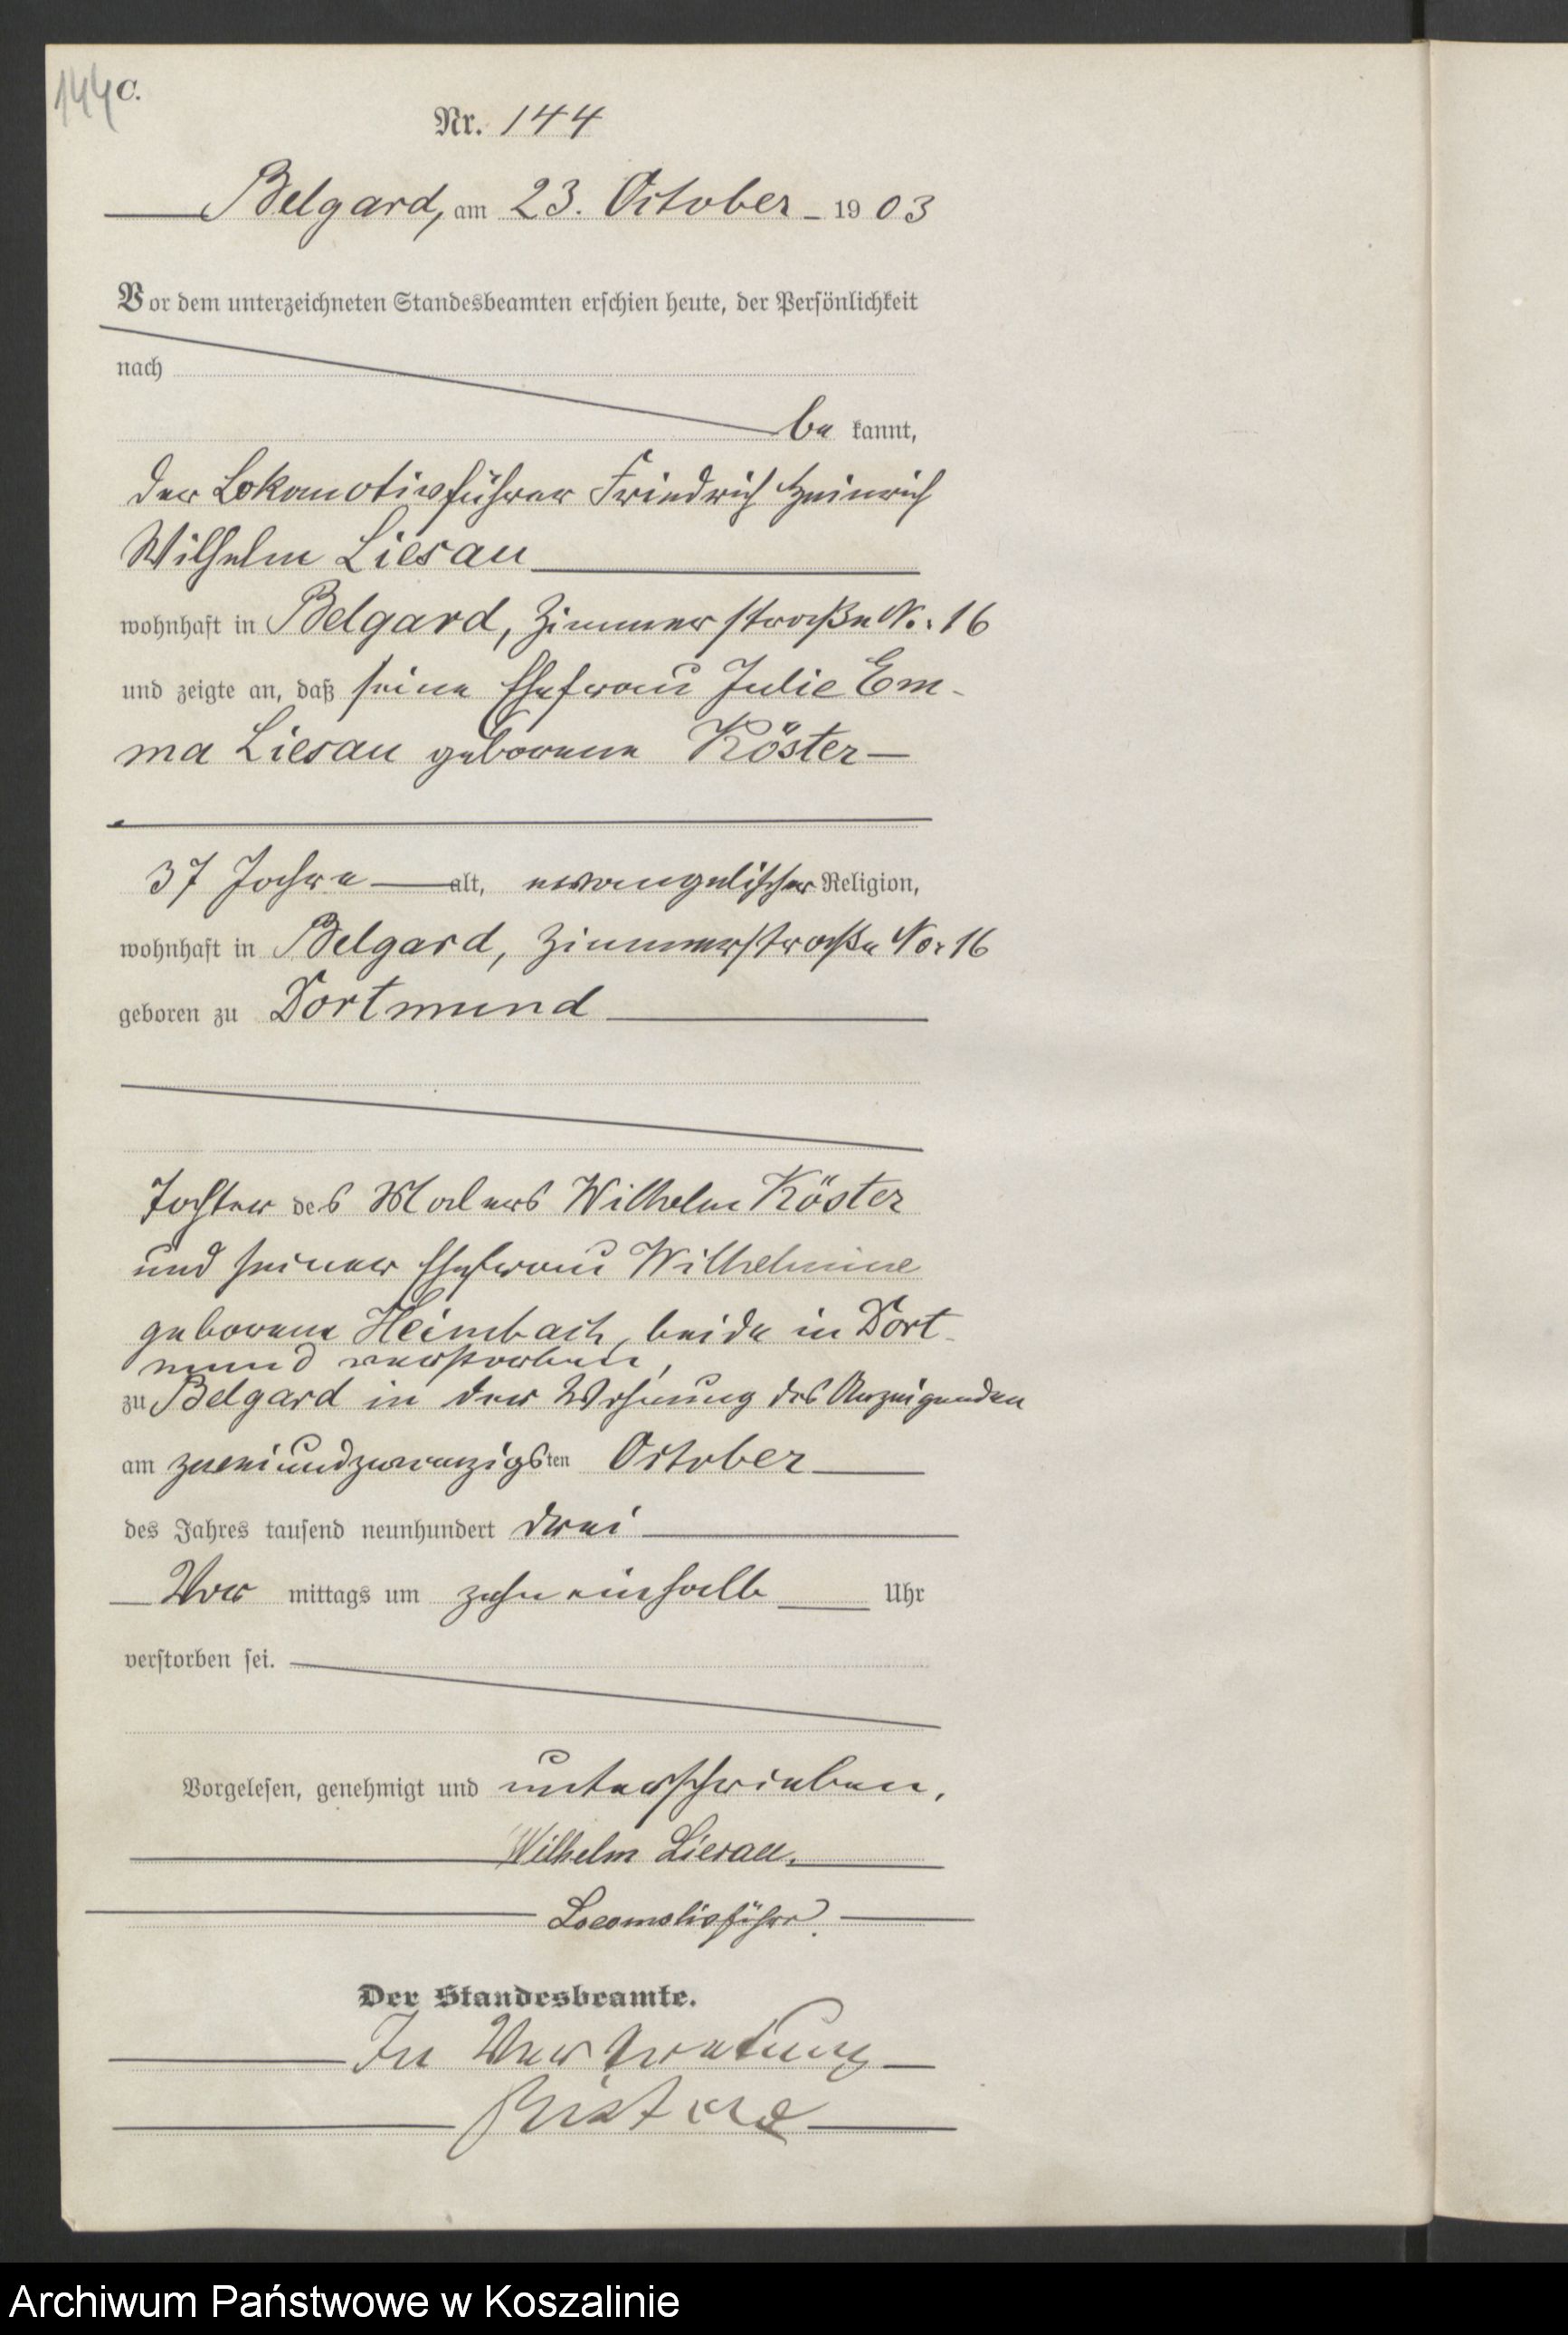 144
C.
Nr. 144
Belgard, am 23. October 1903
Vor dem unterzeichneten Standesbeamten erschien heute, der Persönlichkeit
nach
be kannt,
der Lokomotivführer Friedrich Heinrich
Wilhelm Liesau
wohnhaft in Belgard, Zimmerstraße No. 16
und zeigte an, daß seine Ehefrau Julie Em-
ma Liesau geborene Köster
37 Jahre alt, evangelischer Religion,
wohnhaft in Belgard, Zimmerstraße No. 16
geboren zu Dortmund
Tochter des Malers Wilhelm Köster
und seiner Ehefrau Wilhelmine
geborene Heimbach, beide in Dort-
mund verstorben,
zu Belgard in der Wohnung des Anzeigenden
am zweiundzwanzigsten October
des Jahres tausend neunhundert drei
Vor mittags um zehn einhalb Uhr
verstorben sei.
Vorgelesen, genehmigt und unterschrieben.
Wilhelm Liesau.
Locomotivführer.
Der Standesbeamte.
In Vertretung
Archiwum Państwowe w Koszalinie